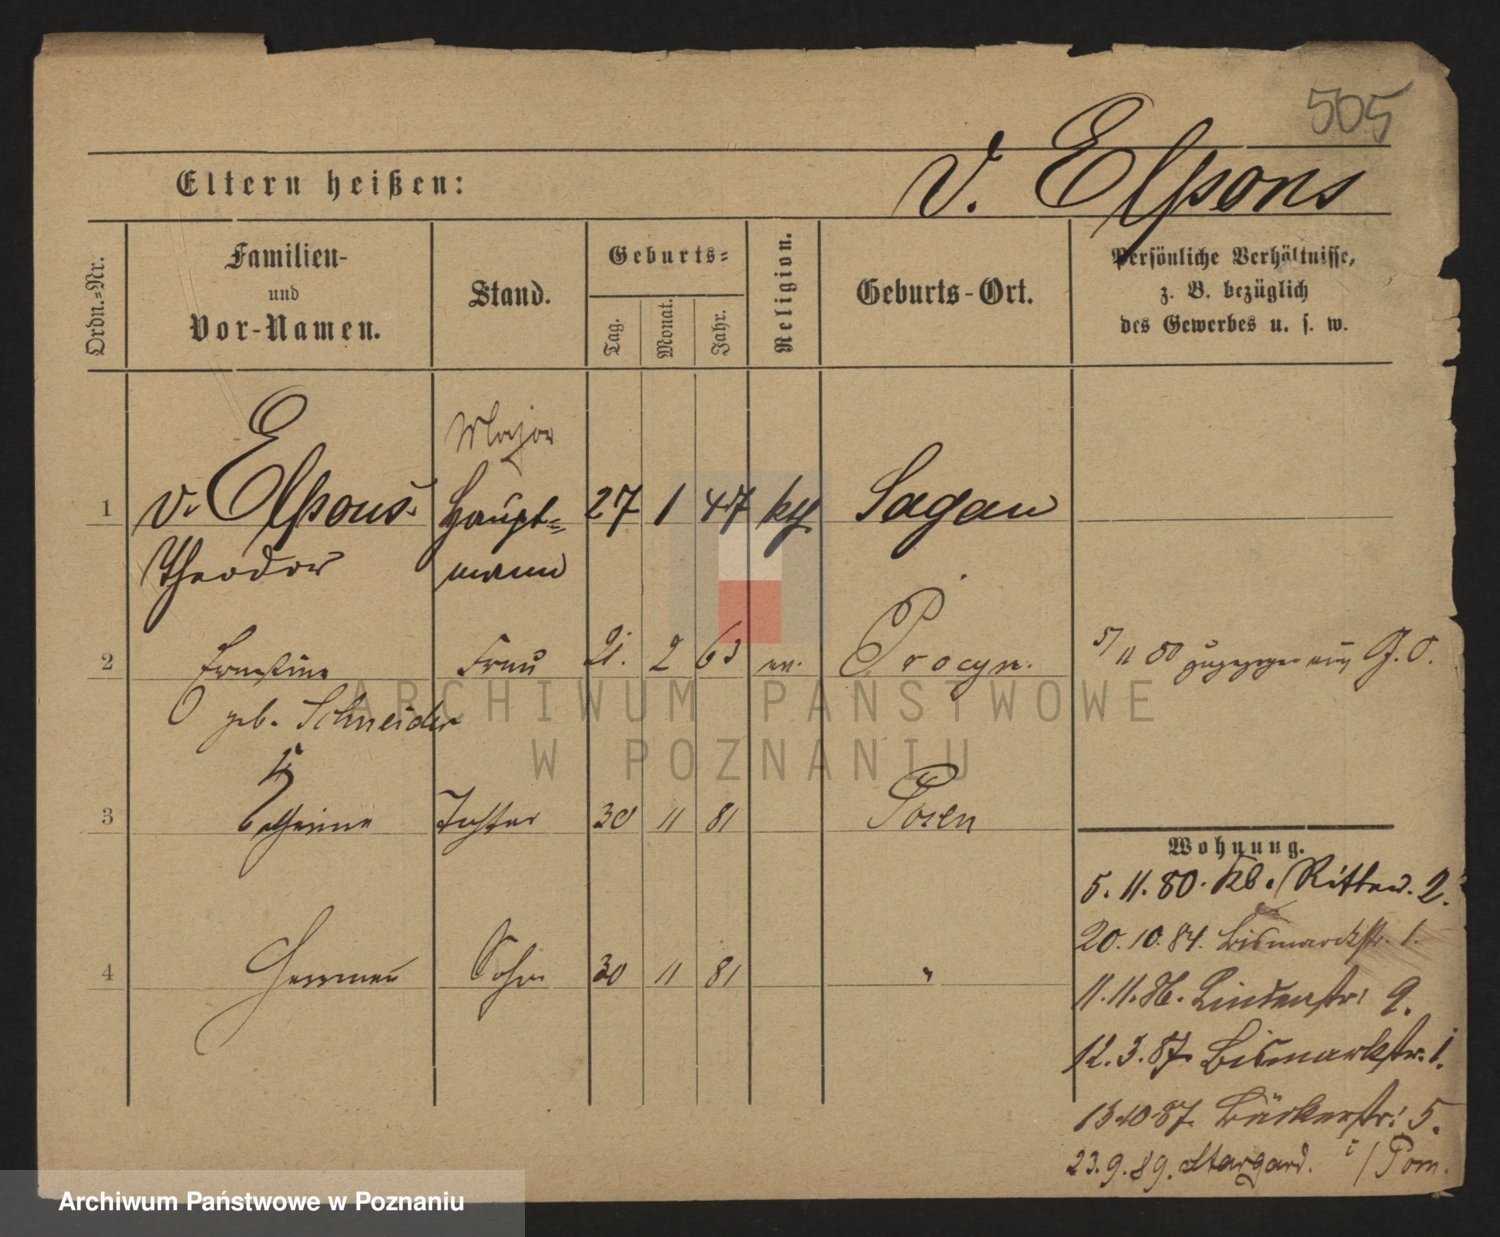 505
v. Elpons
Eltern heißen:
Ordn.=Nr.
Familien-
und
Vor-Namen.
Stand.
Geburts=
Tag.
Monat.
Jahr.
Religion.
Geburts-Ort.
Persönliche Verhältnisse,
z. B. bezüglich
des Gewerbes u. s. w.
Major
1 v. Elpons Haupt= 27 1 47 Sagan
Theodor mann
2 Ernestine Frau 21. 2 63 ev. 5/11 80 zugezogen aus
geb. Schneider
3 Tochter 30 11 81 Posen
4 Herrman Sohn 30 11 81 "
Wohnung.
5. 11. 80. Kl. Ritterst. 2.
20. 10. 84. Bismarckstr. 1.
11. 11. 86. Lindenstr. 9.
12. 3. 87. Bismarkstr. 1.
13 10 87. Bäckerstr. 5.
23. 9. 89. Stargard. i/Pom.
ARCHIWUM PAŃSTWOWE
W POZNANIU
Archiwum Państwowe w Poznaniu